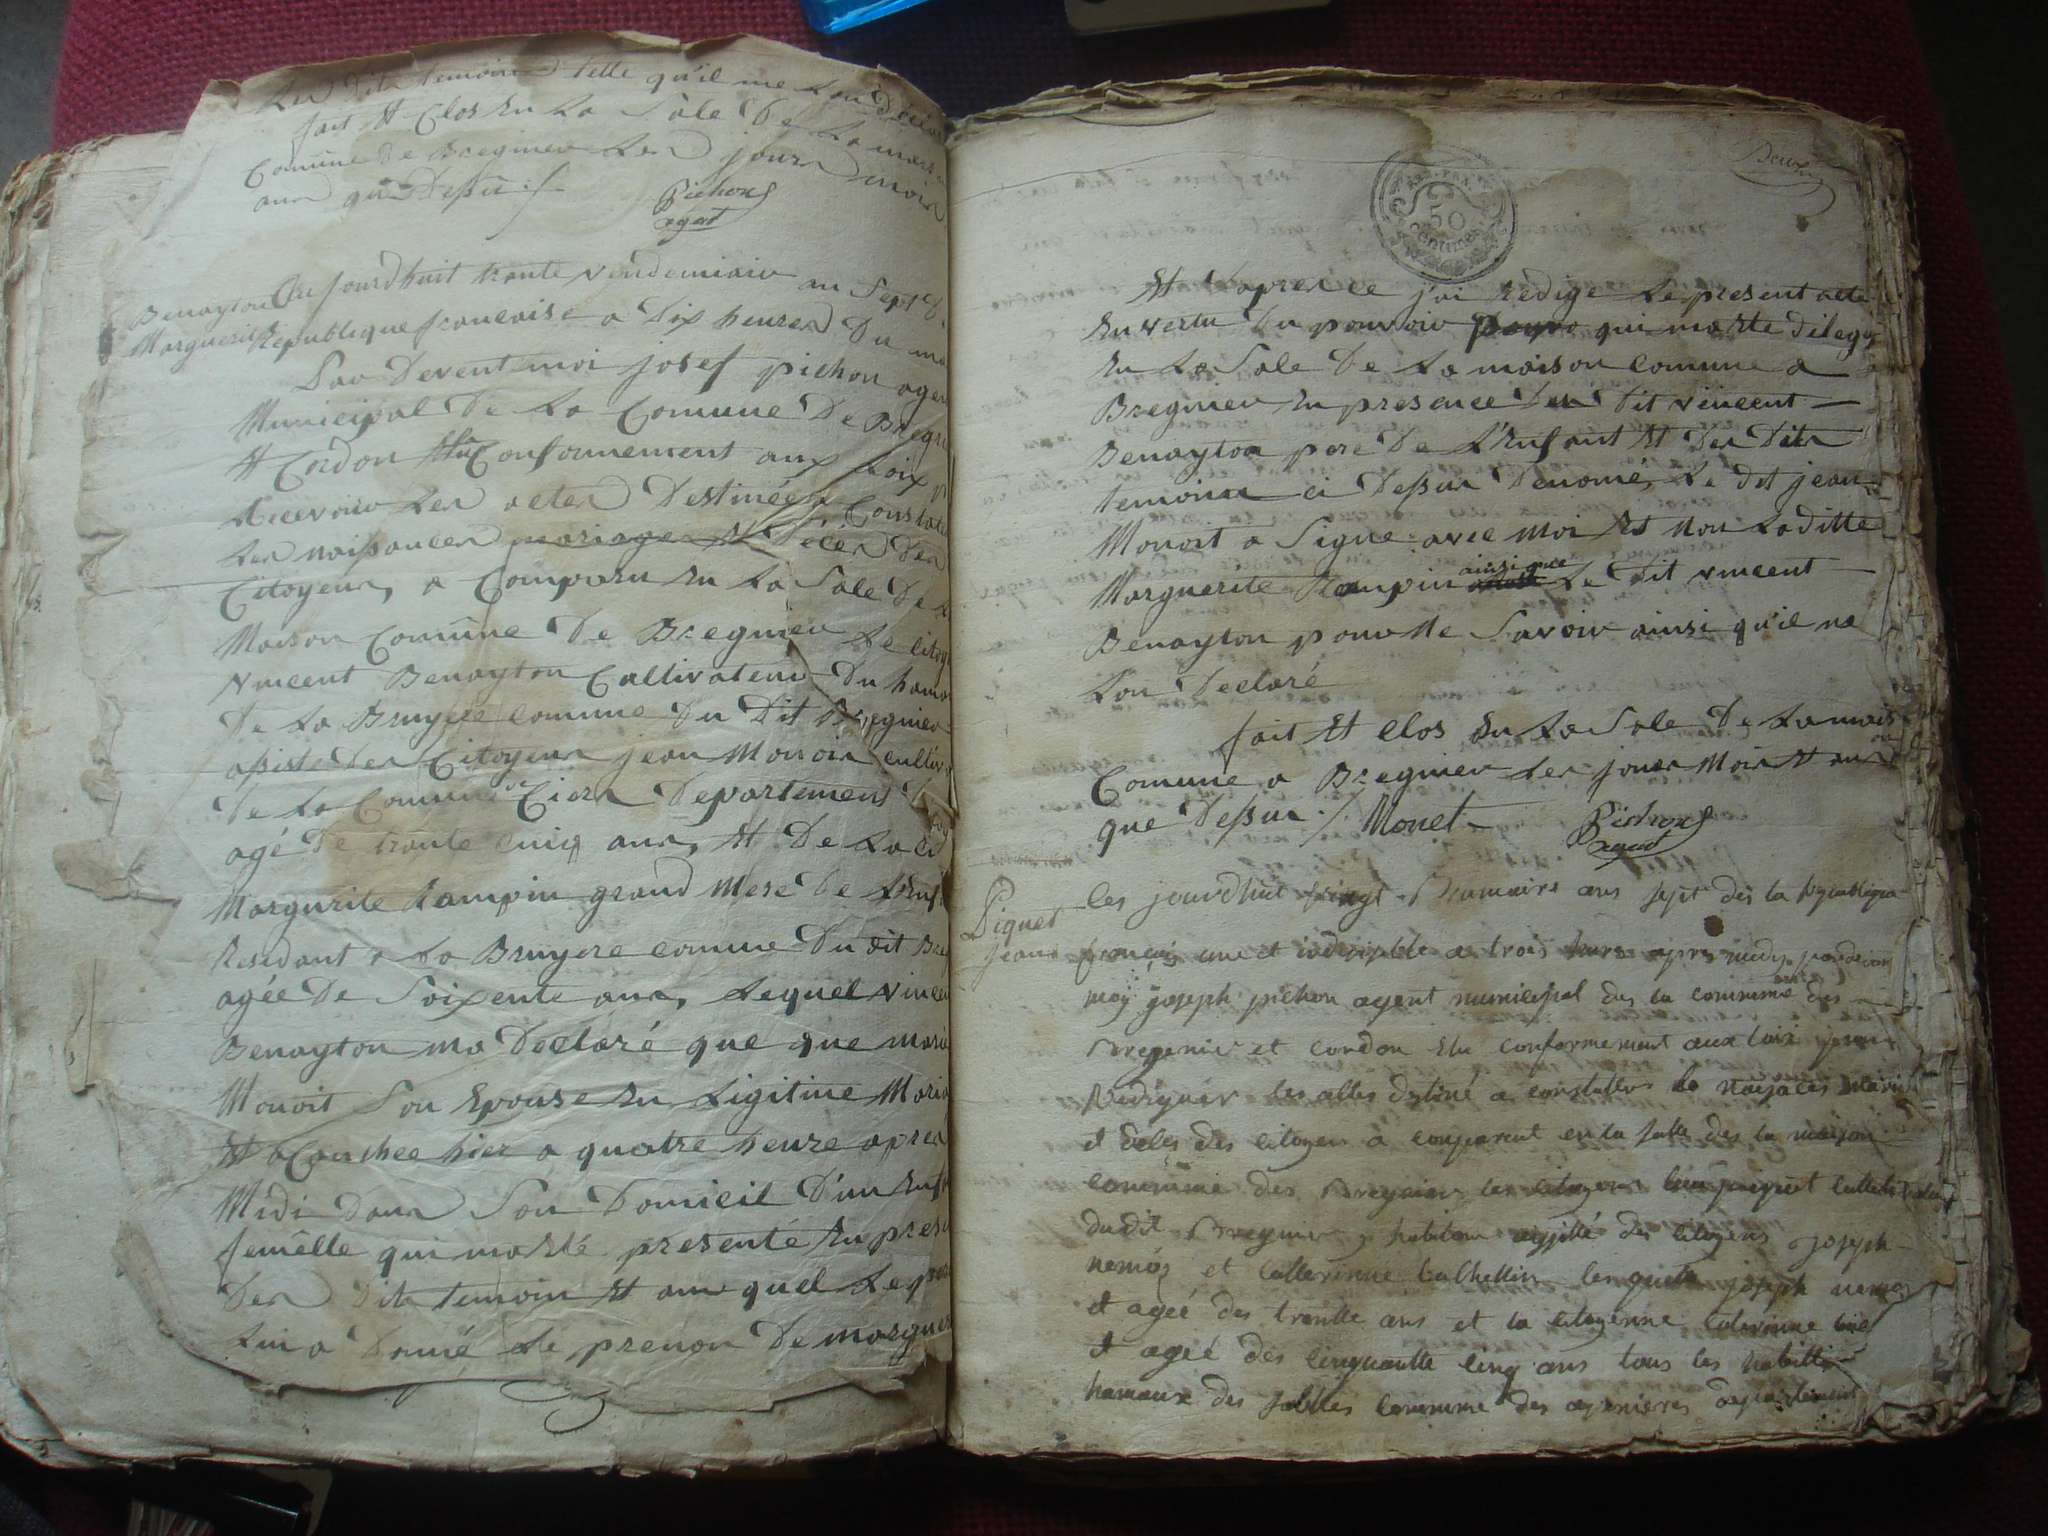 Les dits temoins telle qu'il me l'on déclar
fait Et Clos En La Sâle De La mais
Comune De Bregnier Les jours mois
ans que Dessus
Pichon
agat
Benayton
Marguerit
Au jourdhuit trante vendemiair an Sept
Republique francaise a Dix heures Du ma
Par Devent moi josef pichon agen
Municipal De La Comune De Bregni
Et Cordon Elu Conformement aux Loix
Recevoir Les actes Destinées a Constater
Les naissances mariages Et Deces Des
Citoyens, a Comparu En La Sale De La
Maison Comune De Bregnier Le citoye
vincent Benayton Cultivateur Du hame
De La Bruyere comune Du Dit Bregnier
assisté Des Citoyens jean Monoit cultiva
De La Comune De Departement
agé De trante cinq ans, Et De La Cit
Margurite Rampin grand Mere De L'Enf
Residant a La Bruyere comune Du dit Bre
agée De Soixente ans, Lequel vincen
Benayton ma Declaré que que marie
Monoit Son Epouse En Ligitime Maria
Et aCouchee hier a quatre heure apres
Midi dans Son Domicil D'un Enfa
femêlle qui ma Eté presenté En prese
Des Dits temoin Et au quel Le pere
Lui a Donné Le prenon De marguer
Deux
50
Centimes
Et D'apres ce j'ai Redigé Le present acte
En vertu Du pouvoir qui ma Ete dilegé
En La Sale De La maison comune a
Bregnier En presence Du Dit vincent
Benayton pere De L'Enfant Et Des Dits
temoins ci Dessus Denomé, Le dit jean
Monoit a Signé avec moi Et Non Laditte
Marguerite Rampin ainsi que Le Dit vincent
Benayton pour Ne Savoir ainsi qu'il me
Lon Declaré
fait Et Clos En La Sale De La mais
on
Comune a Bregnier Les jours Mois Et ans
que Dessus ./. Monet Pichon
agent
Piquet
Jean
les jourdhuit vingt Brumaire ans sept des la Republique
françois une et indivisible a trois heure apres midy pardevan
moy joseph pichon agent municipal des la commune des
Bregnier et cordon Elu conformement aux loix pour
Redigér les actes destiné a constatter les naissaces marie
et deces des citoyens a comparut en la salle des la maison
commune des Bregnier les citoyens piquet
dudit Bregnier habitan assisté des citoyens joseph
nemoz et catterinne joseph nemoz
et ageé des trentte ans et la citoyenne catterinne
et ageé des cinquantte cinq ans tous les habitt
hamaux des sables commune des departement